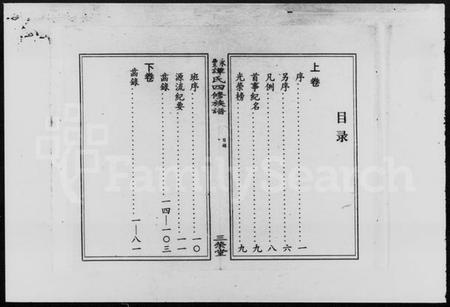 目录
上卷
序……一
另序……六
凡例……八
首事纪名……九
光荣榜……九
譚氏四修族譜
目録
三榮堂
班序……一〇
源流纪要……一一
齿錄……一四—一〇三
下卷
齿錄……一—八一
FamilySearch